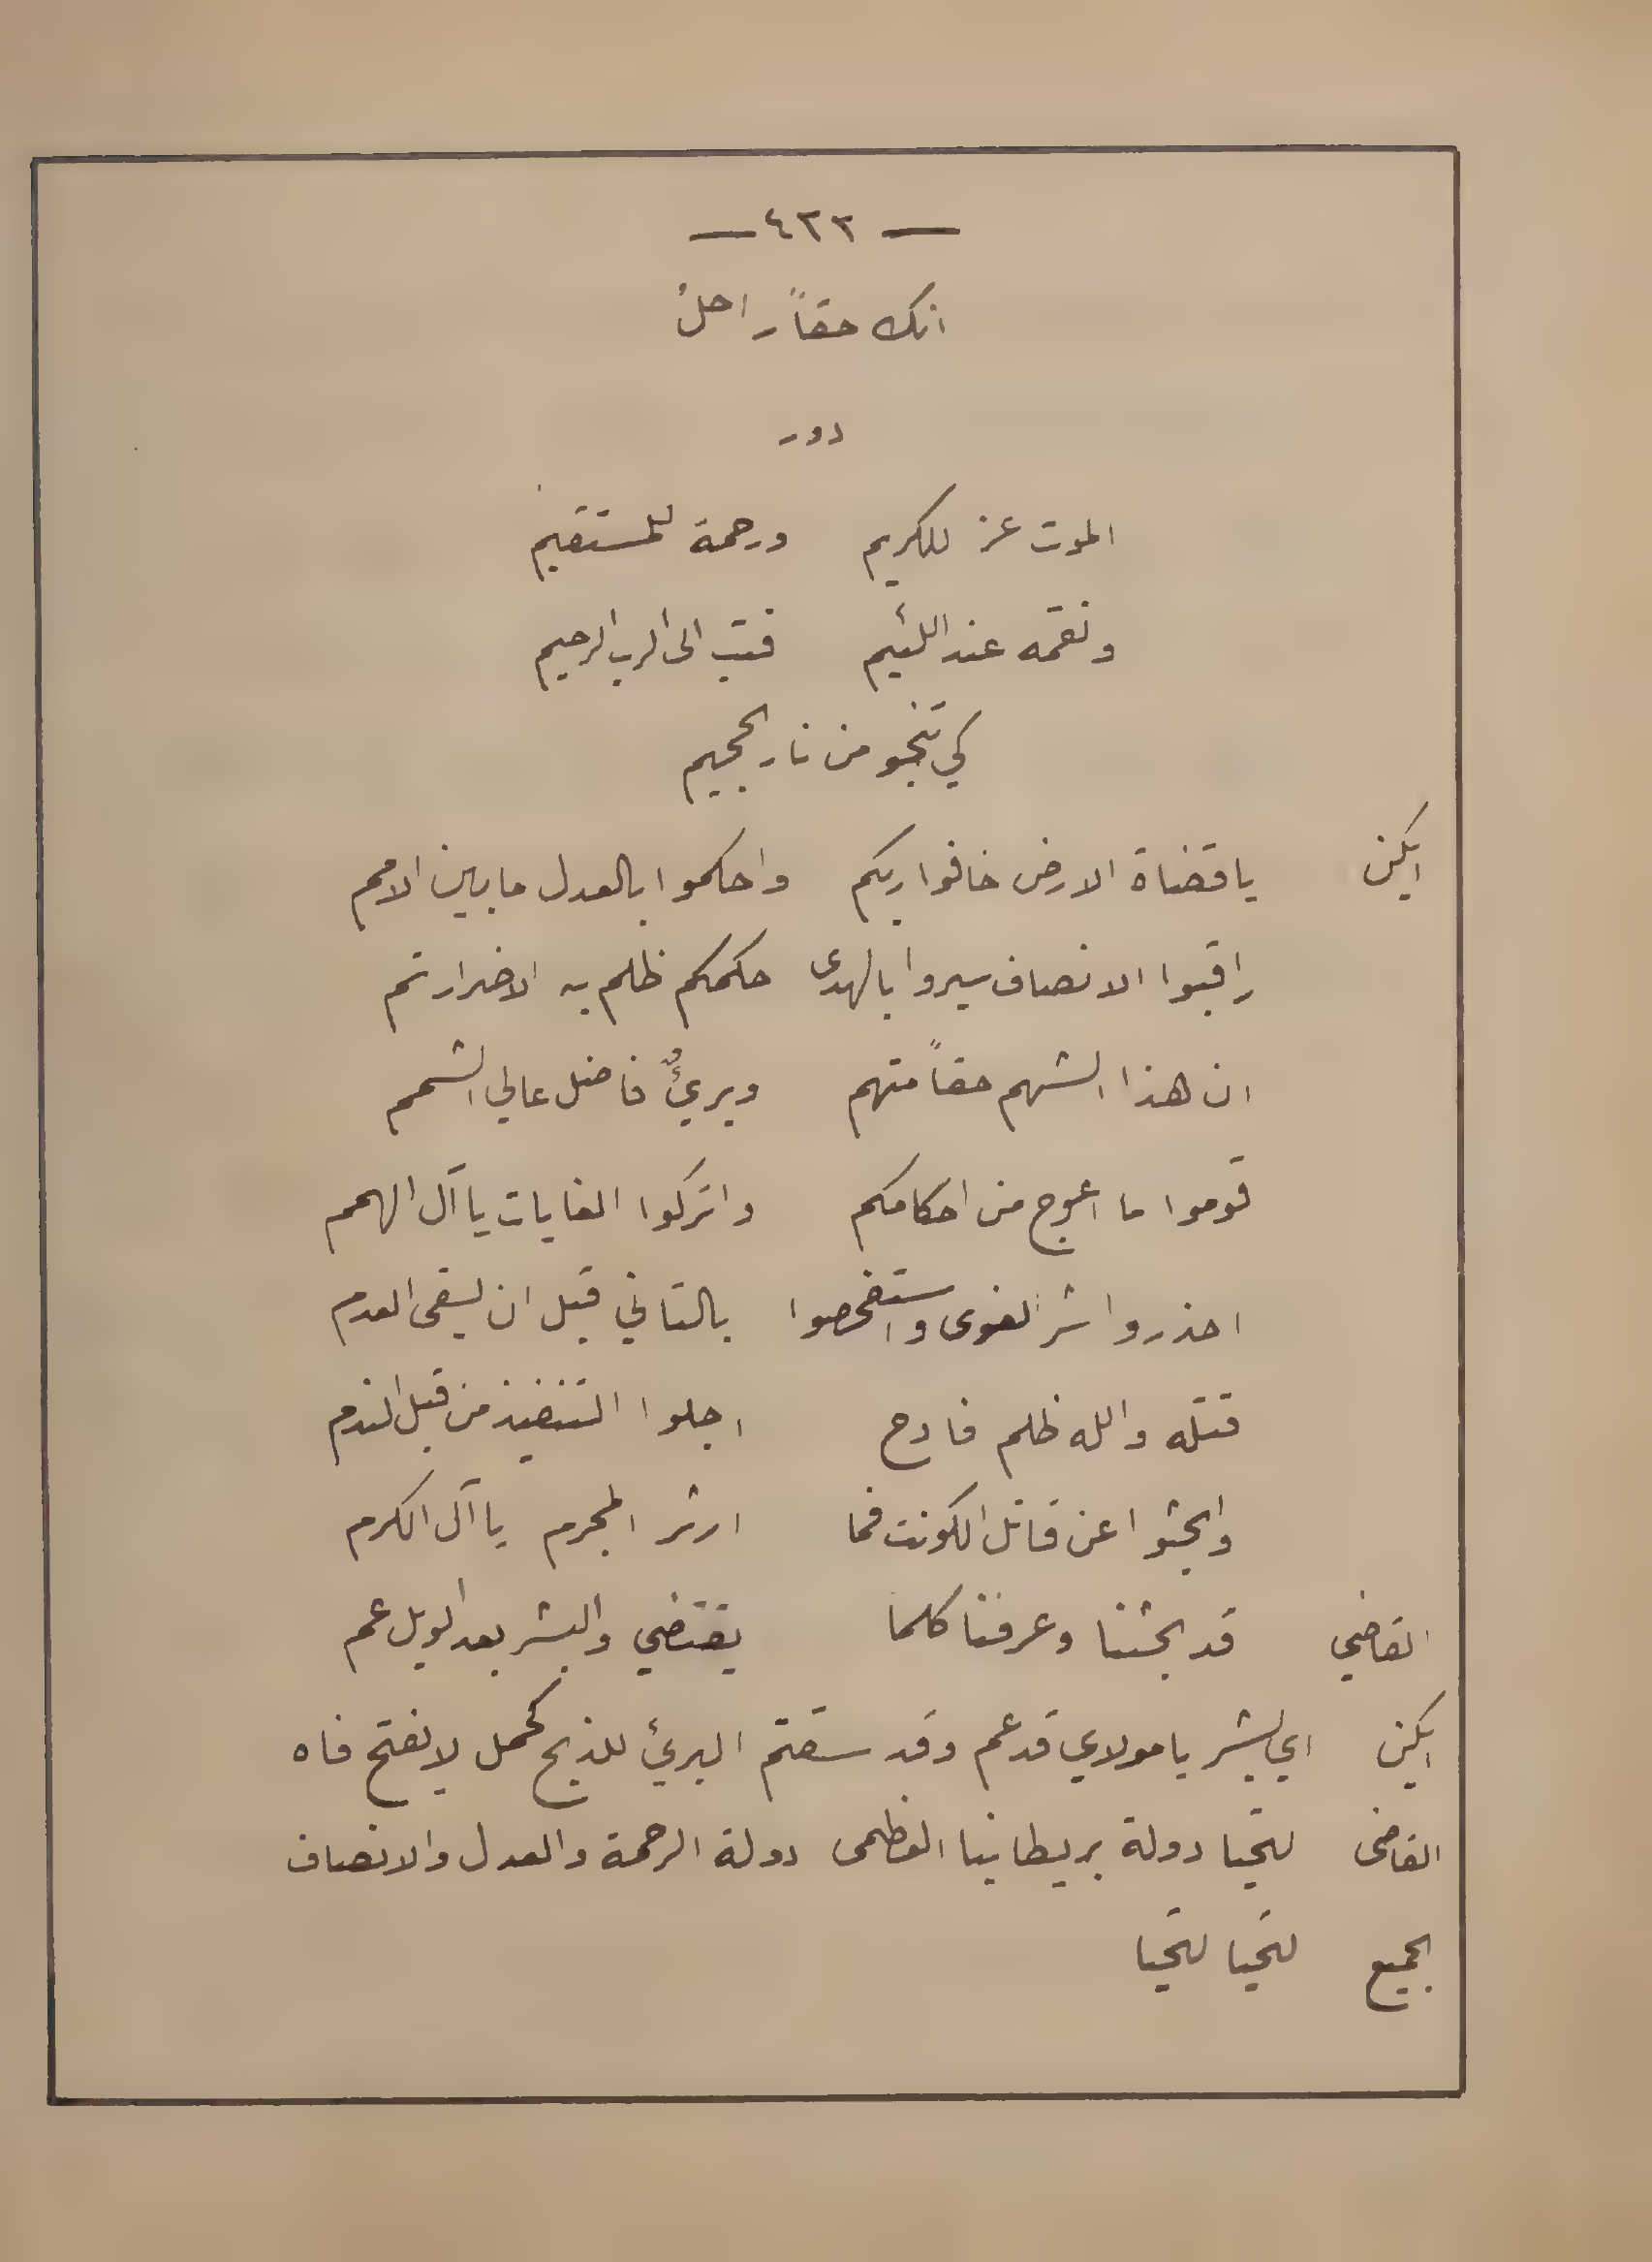 — ٤٢٢ —
انك حقاً راحلُ
دور
الموت عز للكريم ورحمة للمستقيم
ونقمه عند اللئيم فتب الى الرب الرحيم
كي تنجو من نار الجحيم
ايكن ياقضاة الارض خافوا ربكم واحكموا بالعدل مابين الامم
راقبوا الانصاف سيروا بالهدى حكمكم ظلم به الاضرار تم
ان هذا الشهم حقاً متهم وبريءٌ فاضل عالي الشمم
قوموا ما اعوج من احكامكم واتركوا الغايات ياآل الهمم
احذروا شر الغوى واستفحصوا بالتاني قبل ان يسقى العدم
قتله والله ظلم فادح اجلوا التنفيذ من قبل الندم
وابحثوا عن قاتل الكونت فما ارثر المجرم ياآل الكرم
القاضي قد بحثنا وعرفنا كلما يقتضي والبشر بعد الويل عم
ايكن اي بشر يامولاي قد عم وقد سقتم البريء للذبح كحمل لايفتح فاه
القاضى لتحيا دولة بريطانيا العظمى دولة الرحمة والعدل والانصاف
الجميع لتحيا لتحيا